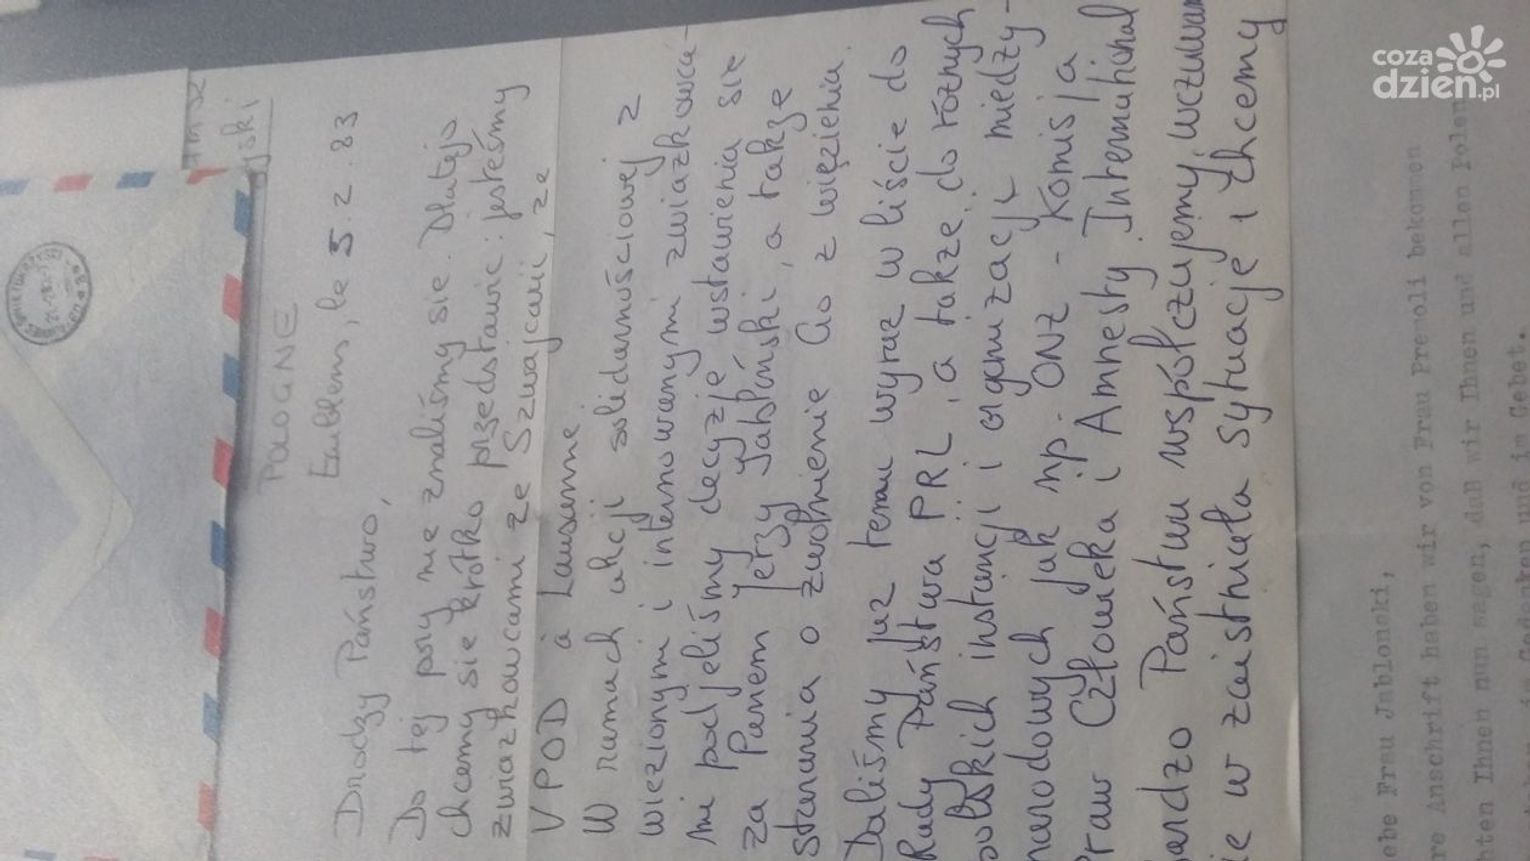 coza
dzień.pl
POLOGNE
Eaublens, le 5.2.83
Drodzy Państwo,
Do tej pory nie znaliśmy się. Dlatego
chcemy się krótko przedstawić: jesteśmy
związkowcami ze Szwajcarii, ze
VPOD à Lausanne
W ramach akcji solidarnościowej z
więzionymi i internowanymi związkowca-
mi podjęliśmy decyzję wstawienia się
za Panem Jerzy Jabłoński, a także
starania o zwolnienie Go z więzienia.
Daliśmy już temu wyraz w liście do
Rady Państwa PRL, a także do różnych
polskich instancji i organizacji między-
narodowych jak np. ONZ - Komisja
Praw Człowieka i Amnesty International
bardzo Państwu współczujemy, wczuwam
się w zaistniałą sytuację i chcemy
ebe Frau Jablonski,
re Anschrift haben wir von Frau Prevoli bekommen
ten Ihnen nun sagen, daß wir Ihnen und allen Polen
Gedenken und im Gebet.